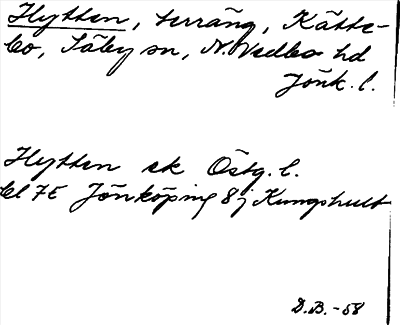 Hytten, terräng, Kätte-
bo, Säby sn, N. Vedbo hd
Jönk. l.
Hytten ek Östg. l.
bl 7E Jönköping 8j Kungshult
D.B. -58